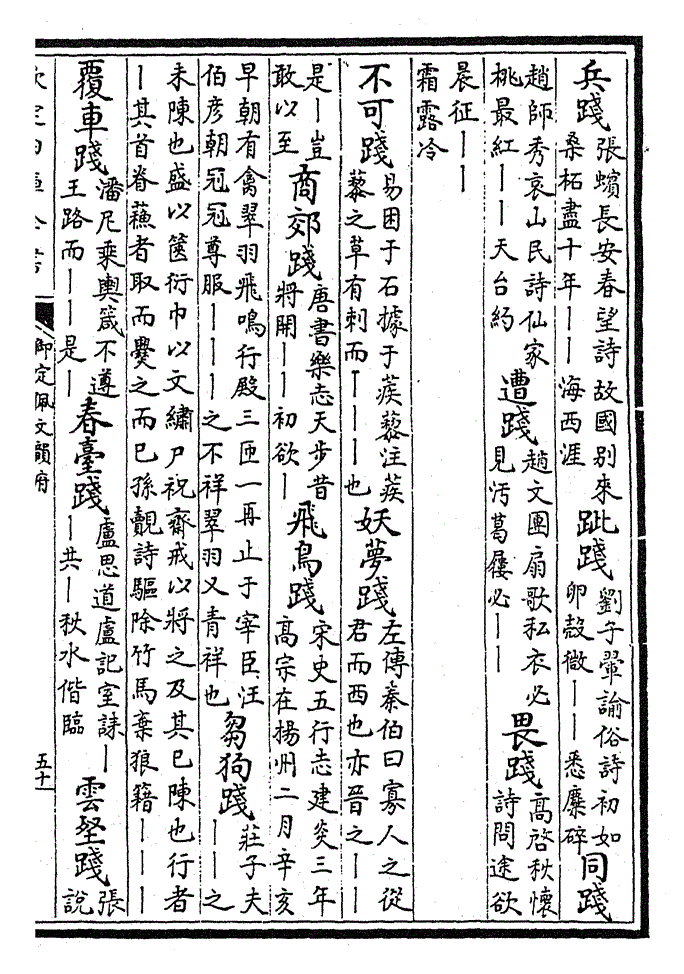 兵踐張蠙長安春望詩故國别來桑柘盡十年丨丨海西涯跐踐劉子翬諭俗詩初如卵殼微丨丨悉糜碎同踐
趙師秀哀山民詩仙家桃最紅丨丨天台約遭踐趙文團扇歌私衣必見汚葛屨必丨丨畏踐高啓秋懷詩問途欲
晨征丨丨霜露冷
不可踐易困于石據于蒺藜注蒺藜之草有刺而丨丨丨也妖夢踐左傳秦伯曰寡人之從君而西也亦晉之丨丨
是丨豈敢以至商郊踐唐書樂志天步昔將開丨丨初欲丨飛鳥踐宋史五行志建炎三年高宗在揚州二月辛亥
早朝有禽翠羽飛鳴行殿三匝一再止于宰臣汪伯彦朝冠冠尊服丨丨丨之不祥翠羽又青祥也芻狗踐莊子夫丨丨之
未陳也盛以篋衍巾以文繡尸祝齋戒以將之及其已陳也行者丨其首脊蘓者取而爨之而已孫覿詩驅除竹馬棄狼籍丨丨丨
覆車踐潘尼乘輿箴不遵王路而丨丨是丨春臺踐盧思道盧記室誄丨丨共丨秋水偕臨雲壑踐張説
欽定四庫全書
御定佩文韻府
五十一